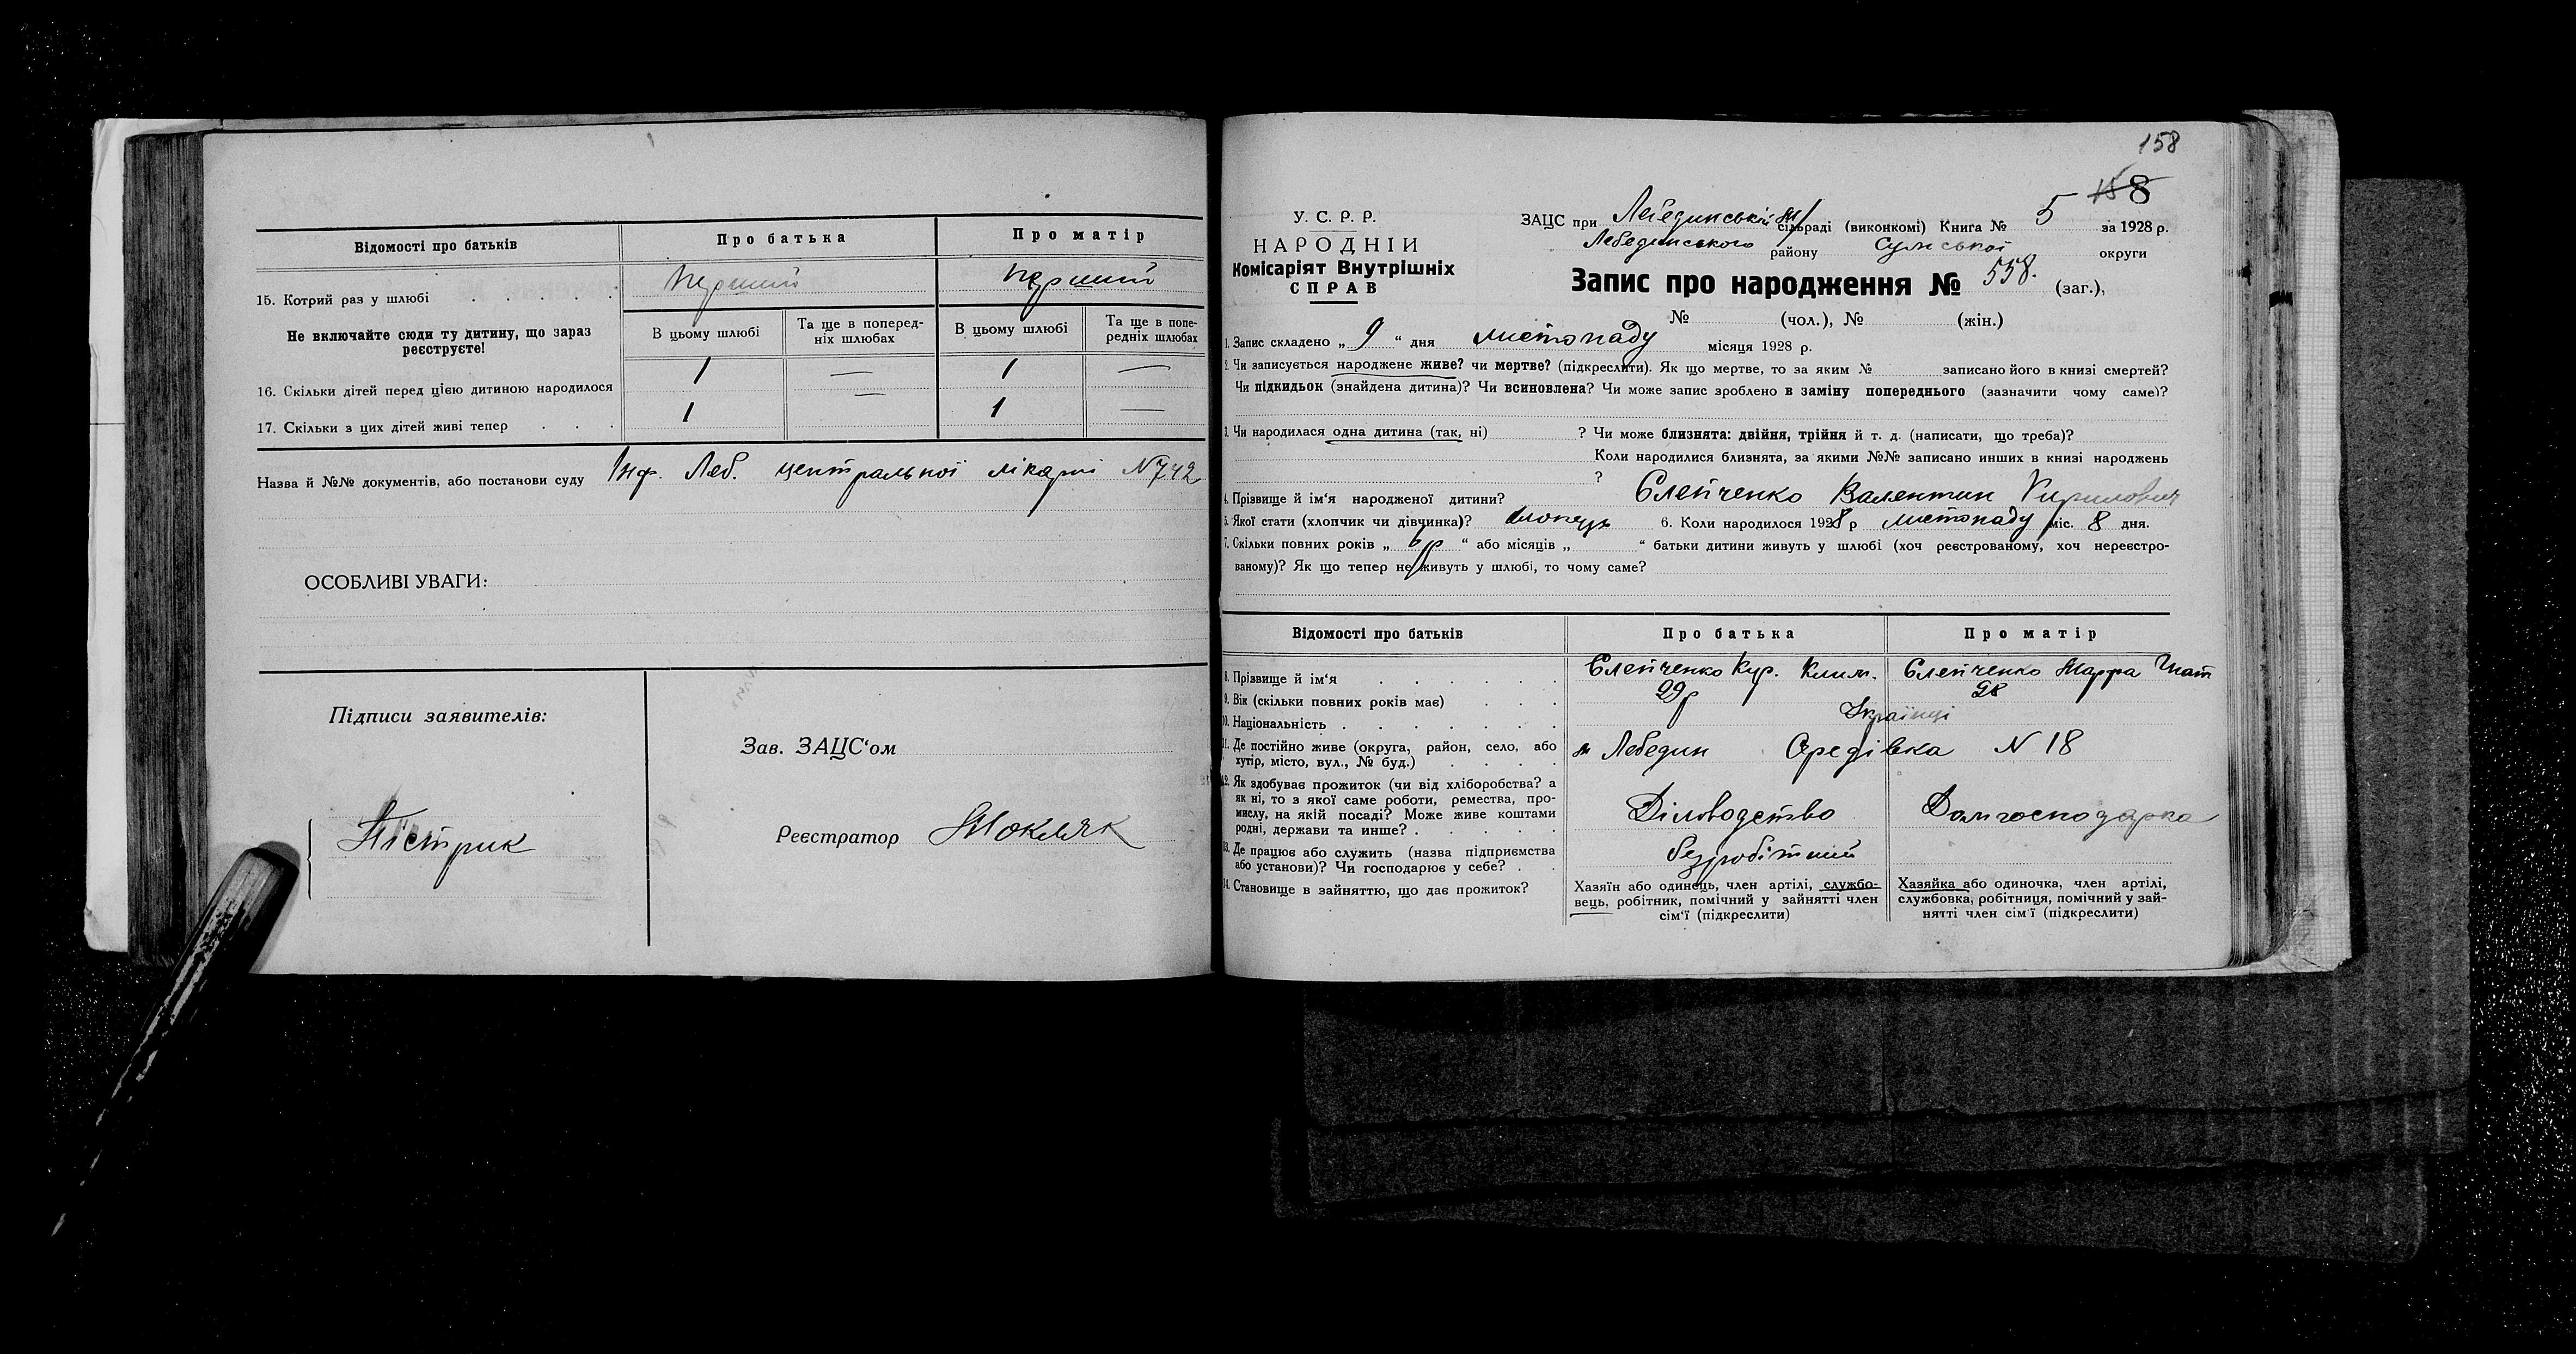 Відомості про батьків
Про батька
Про матір
15. Котрий раз у шлюбі
перший
перший
Не включайте сюди ту дитину, що зараз реєструєте!
В цьому шлюбі
Та ще в поперед-
ніх шлюбах
В цьому шлюбі
Та ще в попе-
редніх шлюбах
16. Скільки дітей перед цією дитиною народилося
1 — 1 —
17. Скільки з цих дітей живі тепер
1 — 1 —
Назва й №№ документів, або постанови суду Інф. Леб. центральної лікарні N 742
ОСОБЛИВІ УВАГИ:
Підписи заявителів:
Пістрик
Зав. ЗАЦС‘ом
Реєстратор Мокляк
158
158
У. С. Р. Р.
НАРОДНІЙ
Комісаріят Внутрішніх
СПРАВ
ЗАЦС при Лебединській м/ сільраді (виконкомі) Книга № 5 за 1928 р.
Лебединського району Сумської округи
Запис про народження № 558. (заг.),
№ (чол.), № (жін.)
1. Запис складено „ 9 “ дня листопаду місяця 1928 р.
2. Чи записується народжене живе? чи мертве? (підкреслити). Як що мертве, то за яким № записано його в книзі смертей?
Чи підкидьок (знайдена дитина)? Чи всиновлена? Чи може запис зроблено в заміну попереднього (зазначити чому саме)?
3. Чи народилася одна дитина (так, ні) ? Чи може близнята: двійня, трійня й т. д. (написати, що треба)?
Коли народилися близнята, за якими №№ записано инших в книзі народжень
?
4. Прізвище й ім‘я народженої дитини? Єлейченко Валентин Кирилович
5. Якої стати (хлопчик чи дівчинка)? хлопець 6. Коли народилося 1928 р листопаду міс. 8 дня.
7. Скільки повних років „ 6 р “ або місяців „ “ батьки дитини живуть у шлюбі (хоч реєстрованому, хоч нереєстро-
ваному)? Як що тепер не живуть у шлюбі, то чому саме?
Відомості про батьків
Про батька
Про матір
8. Прізвище й ім‘я
Єлейченко Кир. Клим.
Єлейченко Марфа Гнат
9. Вік (скільки повних років має)
29 р
28
10. Національність
Українці
11. Де постійно живе (округа, район, село, або
хутір, місто, вул., № буд.)
м Лебедин Середівка N 18
12. Як здобуває прожиток (чи від хліборобства? а
як ні, то з якої саме роботи, ремества, про-
мислу, на якій посаді? Може живе коштами
родні, держави та инше?
Діловодство
Домгосподарка
13. Де працює або служить (назва підприємства
або установи)? Чи господарює у себе?
безробітний
14. Становище в зайняттю, що дає прожиток?
Хазяїн або одинець, член артілі, службо-
вець, робітник, помічний у зайнятті член
сім‘ї (підкреслити)
Хазяйка або одиночка, член артілі,
службовка, робітниця, помічний у зай-
нятті член сім‘ї (підкреслити)